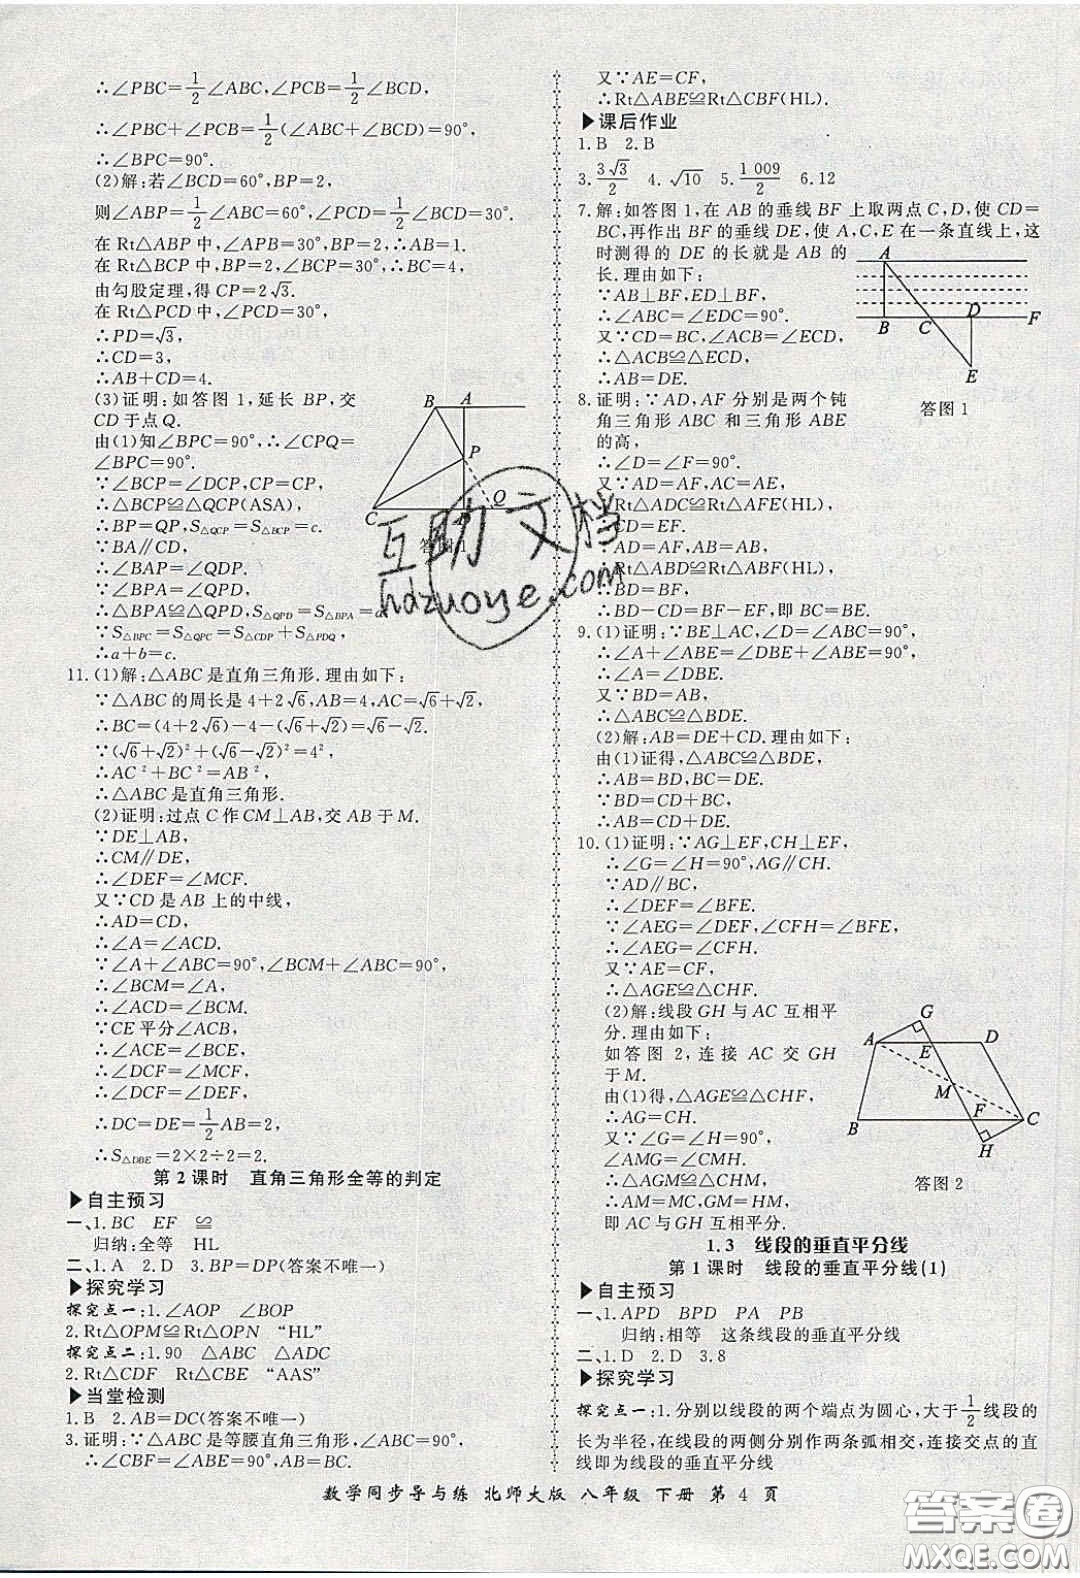 ∴∠PBC=1/2∠ABC,∠PCB=1/2∠BCD,
∴∠PBC+∠PCB=1/2(∠ABC+∠BCD)=90°,
∴∠BPC=90°.
(2)解:若∠BCD=60°,BP=2,
则∠ABP=1/2∠ABC=60°,∠PCD=1/2∠BCD=30°.
在 Rt△ABP 中,∠APB=30°,BP=2,∴AB=1.
在 Rt△BCP 中,BP=2,∠BCP=30°,∴BC=4,
由勾股定理,得 CP=2√3.
在 Rt△PCD 中,∠PCD=30°,
∴PD=√3,
∴CD=3,
∴AB+CD=4.
(3)证明:如答图 1,延长 BP,交
CD 于点 Q.
由(1)知∠BPC=90°,∴∠CPQ=
∠BPC=90°.
∵∠BCP=∠DCP,CP=CP,
∴△BCP≌△QCP(ASA)
∴BP=QP,S△QCP=S△BCP=c.
∵BA∥CD,
∴∠BAP=∠QDP.
∵∠BPA=∠QPD,
∴△BPA≌△QPD,S△QPD=S△BPA=
∵S△BPC=S△QPC=S△CDP+S△PDQ,
∴a+b=c.
B A
P
Q
C
11. (1)解:△ABC 是直角三角形.理由如下:
∵△ABC 的周长是 4+2√6,AB=4,AC=√6+√2,
∴BC=(4+2√6)-4-(√6+√2)=√6-√2.
∵(√6+√2)²+(√6-√2)²=4²,
∴AC²+BC²=AB²,
∴△ABC 是直角三角形.
(2)证明:过点 C 作 CM⊥AB,交 AB 于 M.
∵DE⊥AB,
∴CM∥DE,
∴∠DEF=∠MCF.
又∵CD 是 AB 上的中线,
∴AD=CD,
∴∠A=∠ACD.
∵∠A+∠ABC=90°,∠BCM+∠ABC=90°,
∴∠BCM=∠A,
∴∠ACD=∠BCM.
∵CE 平分∠ACB,
∴∠ACE=∠BCE,
∴∠DCF=∠MCF,
∴∠DCF=∠DEF,
∴DC=DE=1/2AB=2,
∴S△DBE=2×2÷2=2.
第 2 课时 直角三角形全等的判定
▶自主预习
一、1. BC EF ≌
归纳:全等 HL
二、1. A 2. D 3. BP=DP(答案不唯一)
▶探究学习
探究点一:1. ∠AOP ∠BOP
2. Rt△OPM≌Rt△OPN “HL”
探究点二:1. 90 △ABC △ADC
2. Rt△CDF Rt△CBE “AAS”
▶当堂检测
1. B 2. AB=DC(答案不唯一)
3. 证明:∵△ABC 是等腰直角三角形,∠ABC=90°,
∴∠CBF=∠ABE=90°,AB=CB.
又∵AE=CF,
∴Rt△ABE≌Rt△CBF(HL).
▶课后作业
1. B 2. B
3. 3√3/2 4. √10 5. 1 009/2 6. 12
7. 解:如答图 1,在 AB 的垂线 BF 上取两点 C,D,使 CD=
BC,再作出 BF 的垂线 DE,使 A,C,E 在一条直线上,这
时测得的 DE 的长就是 AB 的
长.理由如下:
∵AB⊥BF,ED⊥BF,
∴∠ABC=∠EDC=90°.
又∵CD=BC,∠ACB=∠ECD,
∴△ACB≌△ECD,
∴AB=DE.
A
B C D F
E
答图 1
8. 证明:∵AD,AF 分别是两个钝
角三角形 ABC 和三角形 ABE
的高,
∴∠D=∠F=90°.
又∵AD=AF,AC=AE,
∴Rt△ADC≌Rt△AFE(HL),
∴CD=EF.
∵AD=AF,AB=AB,
∴Rt△ABD≌Rt△ABF(HL),
∴BD=BF,
∴BD-CD=BF-EF,即 BC=BE.
9. (1)证明:∵BE⊥AC,∠D=∠ABC=90°,
∴∠A+∠ABE=∠DBE+∠ABE,
∴∠A=∠DBE.
又∵BD=AB,
∴△ABC≌△BDE.
(2)解:AB=DE+CD.理由如下:
由(1)证得,△ABC≌△BDE,
∴AB=BD,BC=DE.
∵BD=CD+BC,
∴AB=CD+DE.
10. (1)证明:∵AG⊥EF,CH⊥EF,
∴∠G=∠H=90°,AG∥CH.
∵AD∥BC,
∴∠DEF=∠BFE.
∵∠AEG=∠DEF,∠CFH=∠BFE,
∴∠AEG=∠CFH.
又∵AE=CF,
∴△AGE≌△CHF.
(2)解:线段 GH 与 AC 互相平
分.理由如下:
如答图 2,连接 AC 交 GH
于 M.
由(1)得,△AGE≌△CHF,
∴AG=CH.
又∵∠G=∠H=90°,
∠AMG=∠CMH,
∴△AMG≌△CMH,
∴AM=MC,GM=MH,
即 AC 与 GH 互相平分.
G
A E D
M
F
B C
H
答图 2
1.3 线段的垂直平分线
第 1 课时 线段的垂直平分线(1)
▶自主预习
一、1. APD BPD PA PB
归纳:相等 这条线段的垂直平分线
二、1. D 2. D 3. 8
▶探究学习
探究点一:1. 分别以线段的两个端点为圆心,大于1/2线段的
长为半径,在线段的两侧分别作两条弧相交,连接交点的直
线即为线段的垂直平分线
数学同步导与练 北师大版 八年级 下册 第 4 页
互助文档
hdzuoye.com
答案圈
MXQE.COM